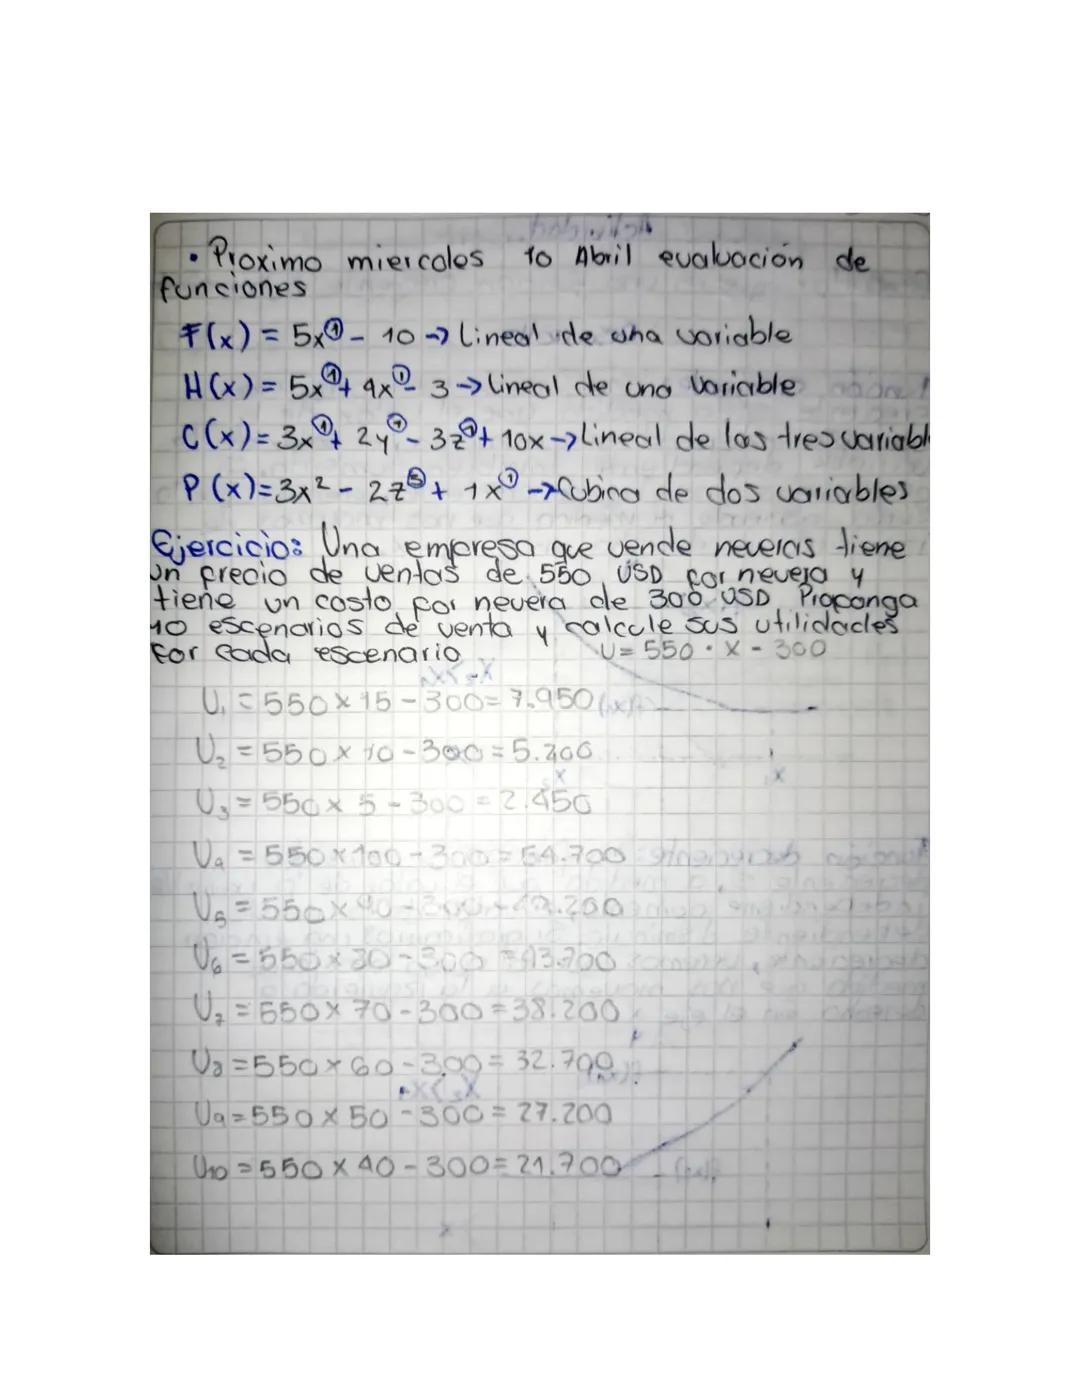 • Proximo miercoles 10 Abril evaluación de
funciones
F(x) = 5x① - 10 → Lineal de una variable
H(x) = 5x① + 4x① - 3 → Lineal de una variable
C(x) = 3x① + 2y① - 3z① + 10x → Lineal de las tres variabl
P(x) = 3x² - 2z③ + 1x① → Cubica de dos variables
Ejercicio: Una empresa que vende neveras tiene
un precio de ventas de 550 USD por nevera y
tiene un costo por nevera de 300 USD Proponga
10 escenarios de venta y calcule sus utilidades
por cada escenario U = 550 · X - 300
U₁ = 550 x 15 - 300 = 7.950
U₂ = 550 x 10 - 300 = 5.200
U₃ = 550 x 5 - 300 = 2.450
U₄ = 550 x 100 - 300 = 54.700
U₅ = 550 x 90 - 300 = 49.200
U₆ = 550 x 80 - 300 = 43.700
U₇ = 550 x 70 - 300 = 38.200
U₈ = 550 x 60 - 300 = 32.700
U₉ = 550 x 50 - 300 = 27.200
U₁₀ = 550 x 40 - 300 = 21.700